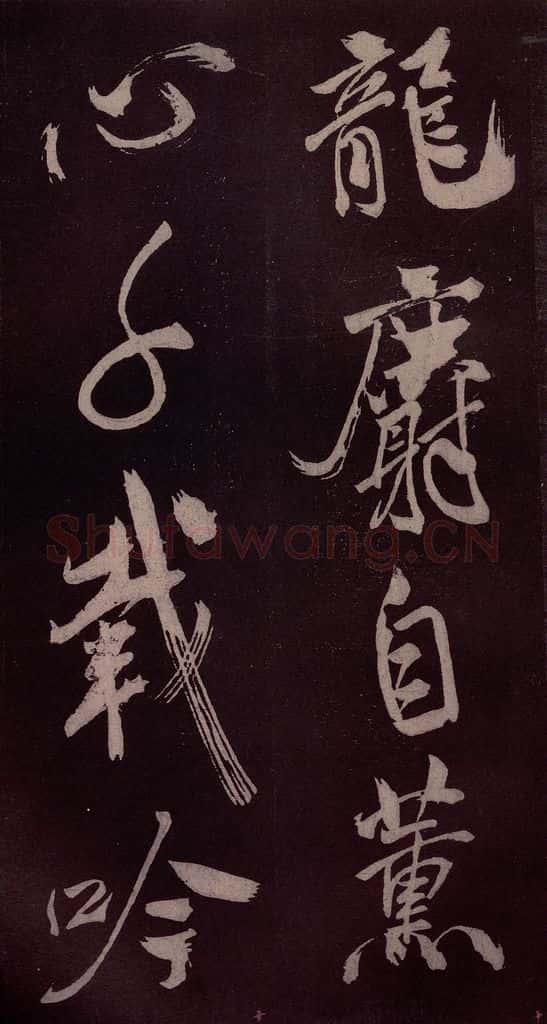 龍麝自薰
心千載吟
Shufawang.CN